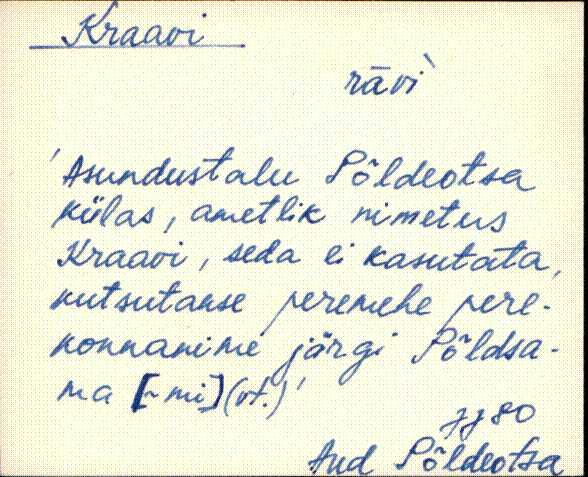 Kraavi
rāvi`
'Asundustalu Põldeotsa
külas, ametlik nimetus
Kraavi, seda ei kasutata,
kutsutakse peremehe pere-
konnanime järgi Põldsa-
ma [~mi] (vt.)'
JJ 80
Aud Põldeotsa